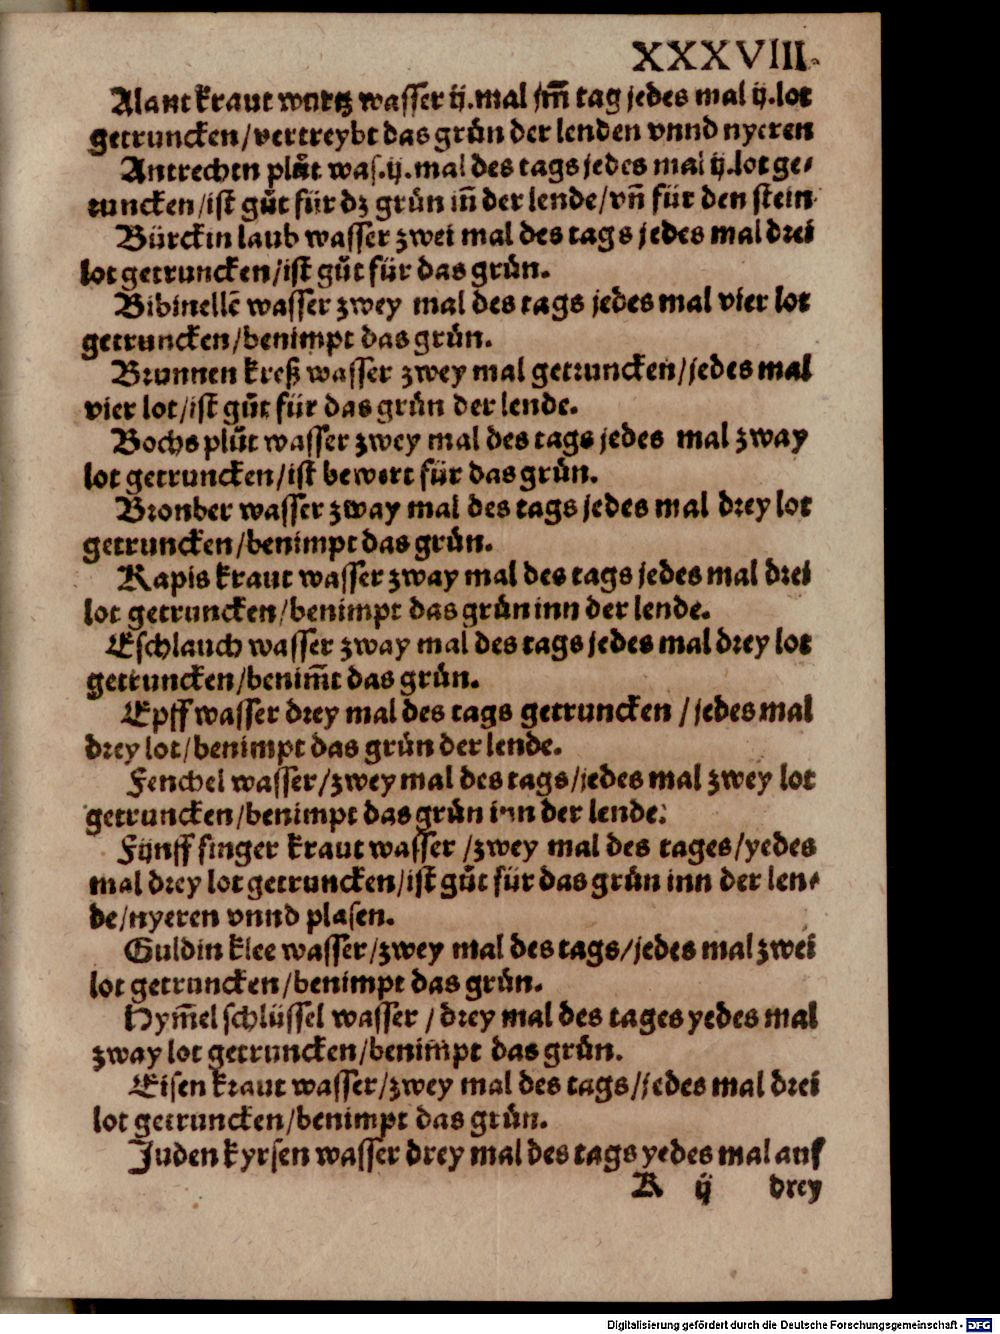 XXXVIII.
Alant kraut wurtz wasser ij.mal im̃ tag jedes mal ij.lot
getruncken/vertreybt das grün der lenden vnnd nyeren
Antrechen plůt was.ij.mal des tags jedes mal ij.lot ge-
truncken/ist gůt für dz grün iñ der lende/vñ für den stein
Bürckin laub wasser zwei mal des tags jedes mal drei
lot getruncken/ist gůt für das grün.
Bibinellē wasser zwey mal des tags jedes mal vier lot
getruncken/benimpt das grün.
Brunnen kreß wasser zwey mal getruncken/jedes mal
vier lot/ist gůt für das grün der lende.
Bochs plůt wasser zwey mal des tags jedes mal zway
lot getruncken/ist bewert für das grün.
Bronber wasser zway mal des tags jedes mal drey lot
getruncken/benimpt das grün.
Kapis kraut wasser zway mal des tags jedes mal drei
lot getruncken/benimpt das grün inn der lende.
Eschlauch wasser zway mal des tags jedes mal drey lot
getruncken/benim̃t das grün.
Epff wasser drey mal des tags getruncken / jedes mal
drey lot/benimpt das grün der lende.
Fenchel wasser/zwey mal des tags/jedes mal zwey lot
getruncken/benimpt das grün inn der lende.
Fünff finger kraut wasser /zwey mal des tages/yedes
mal drey lot getruncken/ist gůt für das grün inn der len-
de/nyeren vnnd plasen.
Guldin klee wasser/zwey mal des tags/jedes mal zwei
lot getruncken/benimpt das grün.
Hym̃el schlüssel wasser / drey mal des tages yedes mal
zway lot getruncken/benimpt das grün.
Eisen kraut wasser/zwey mal des tags/jedes mal drei
lot getruncken/benimpt das grün.
Juden kyrsen wasser drey mal des tags yedes mal auf
K ij drey
Digitalisierung gefördert durch die Deutsche Forschungsgemeinschaft - DFG